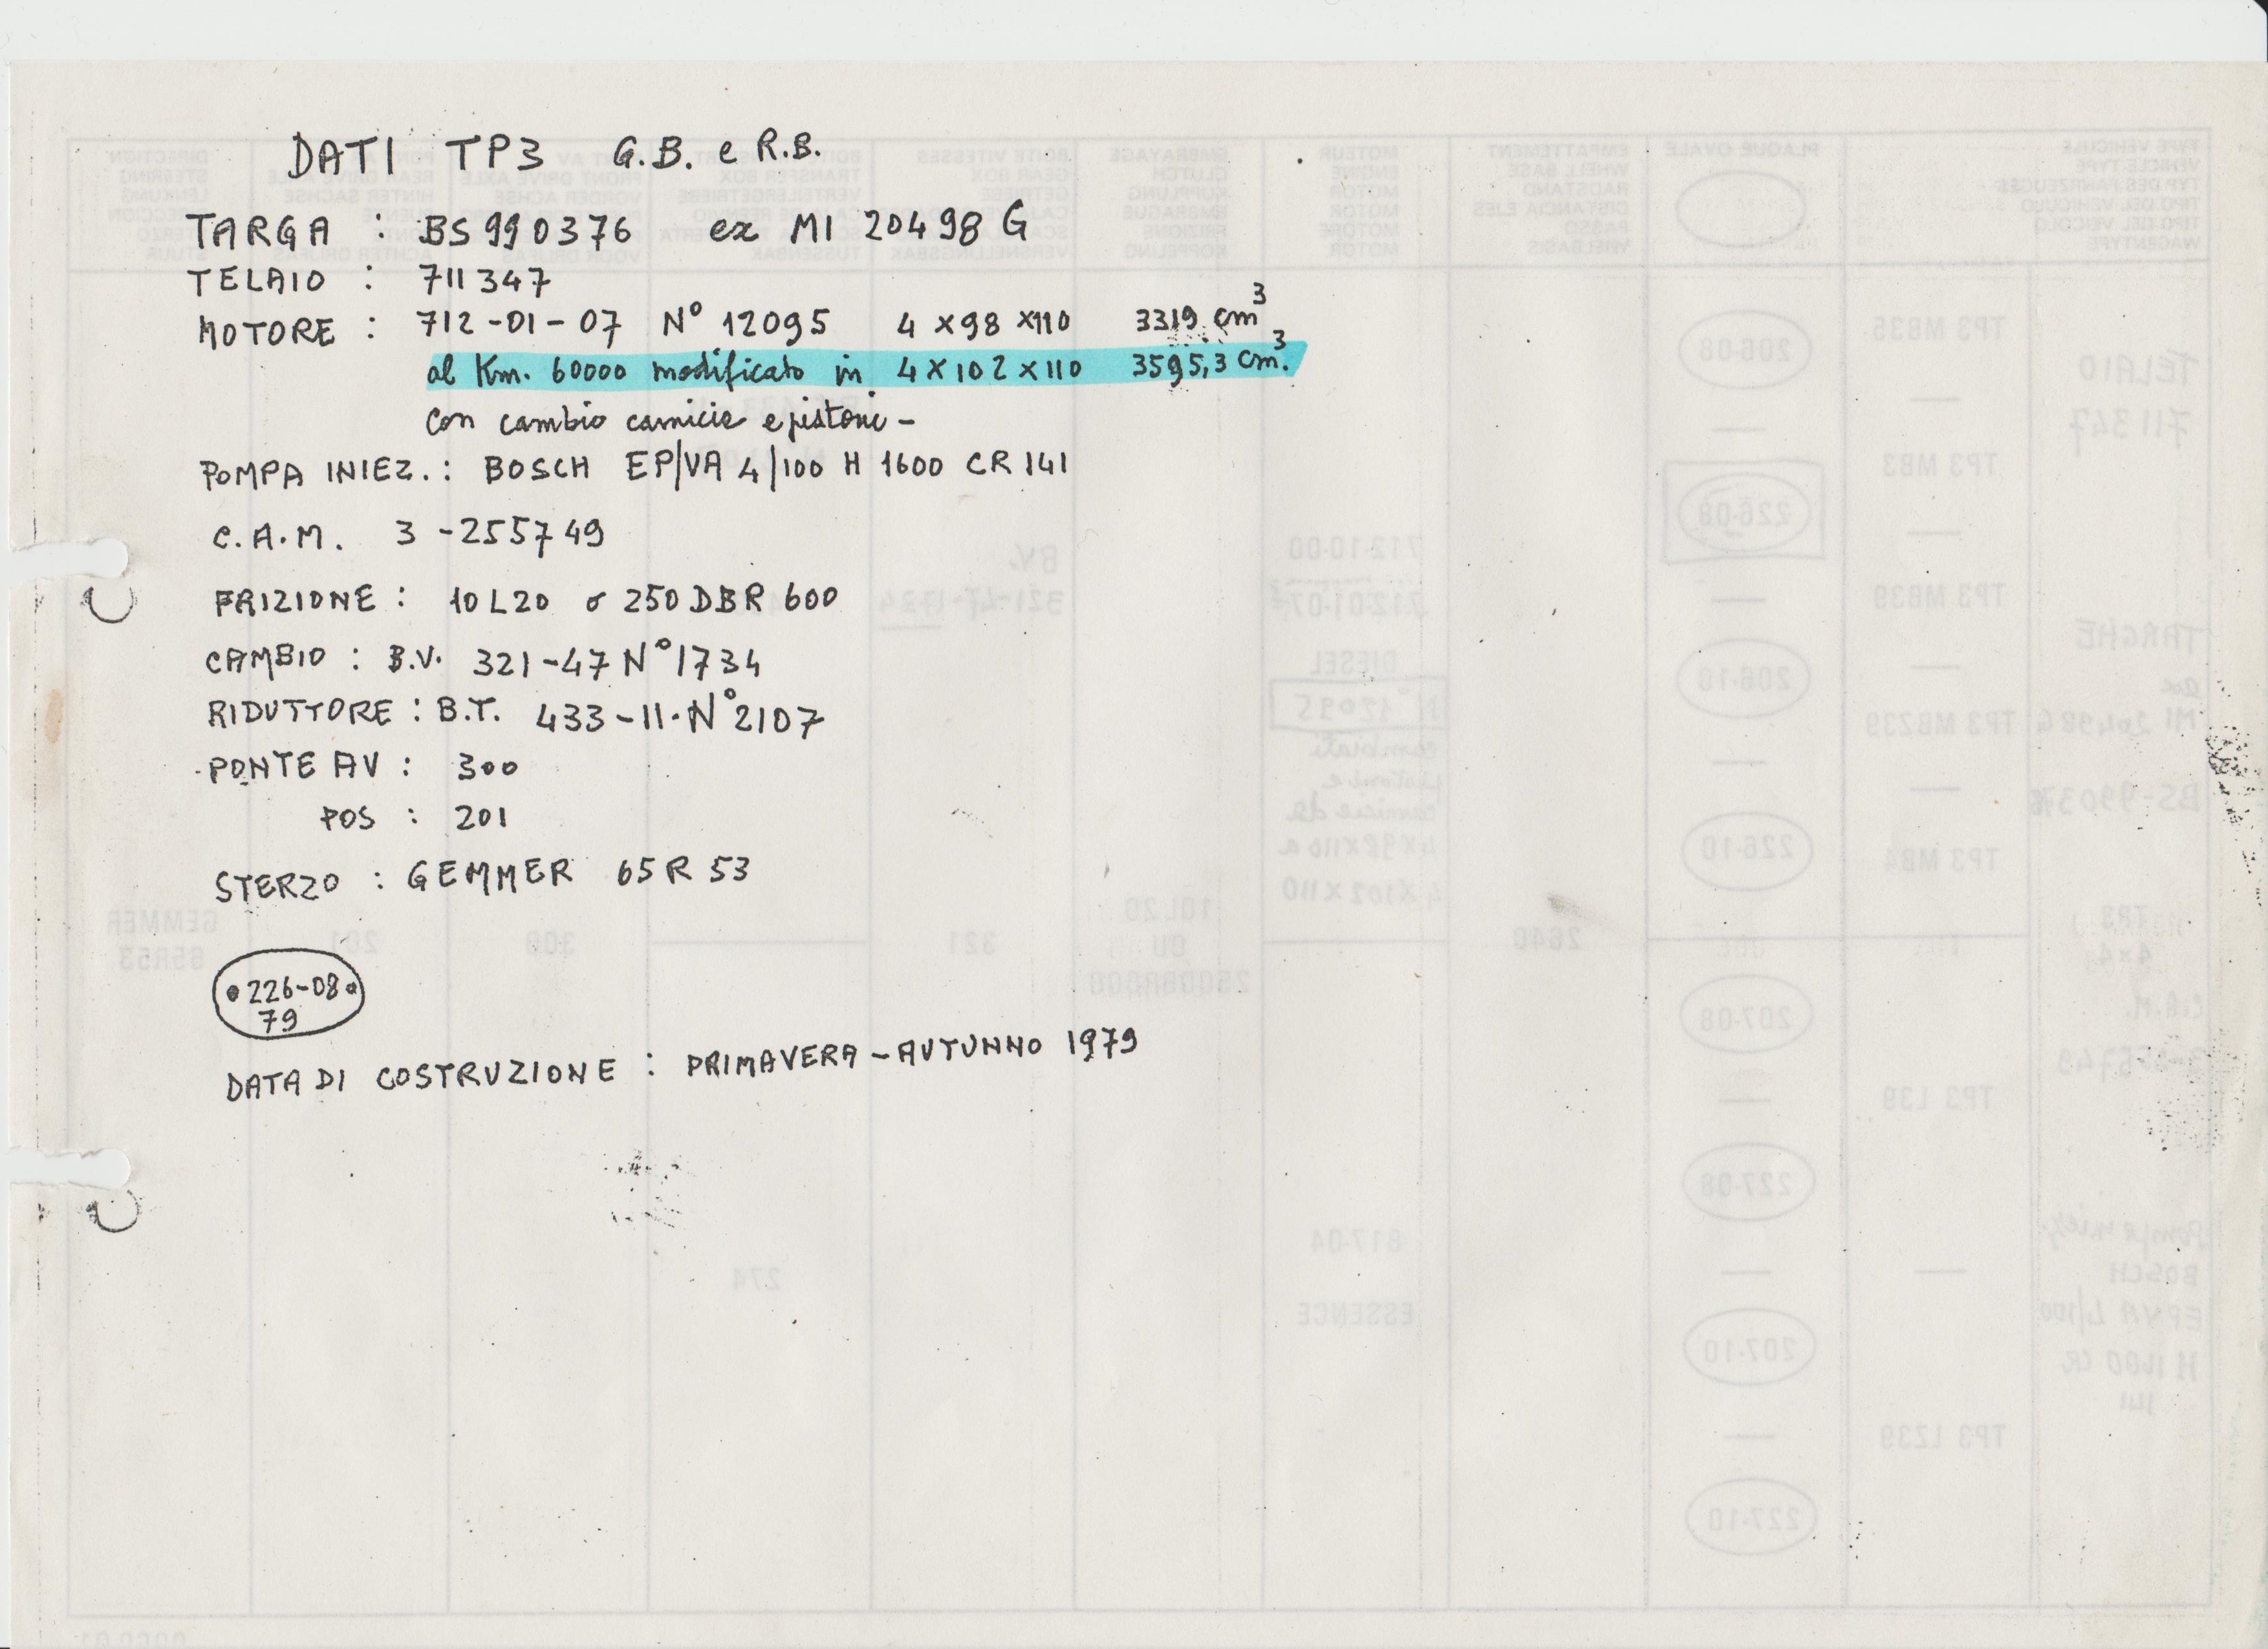 DATI TP3 G.B. e R.B.
TARGA : BS 990376 ex MI 20498 G
TELAIO : 711347
MOTORE : 712-01-07 N° 12095 4 x98 x110 3319 cm³
al Km. 60000 modificato in 4x102x110 3595,3 cm³.
con cambio camicie e pistoni -
POMPA INIEZ.: BOSCH EP/VA 4/100 H 1600 CR 141
C.A.M. 3 -255749
FRIZIONE : 10 L 20 o 250 DBR 600
CAMBIO : B.V. 321-47 N° 1734
RIDUTTORE : B.T. 433-11. N° 2107
PONTE AV : 300
POS : 201
STERZO : GEMMER 65 R 53
226-08
79
DATA DI COSTRUZIONE : PRIMAVERA - AUTUNNO 1979